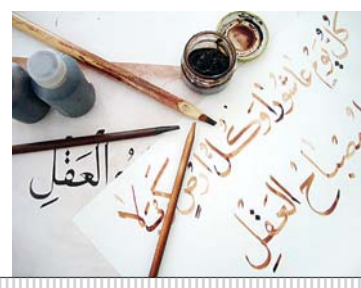 كل يوم عاشورا وكل ارض كربلا
مصباح العقل
العقل